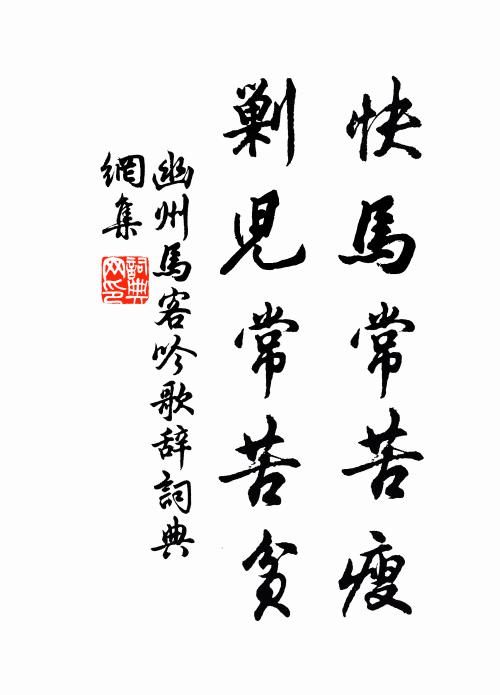 快馬常苦瘦
剿児常苦貧
幽州馬客吟歌辞詞典
網集
詞典
网印